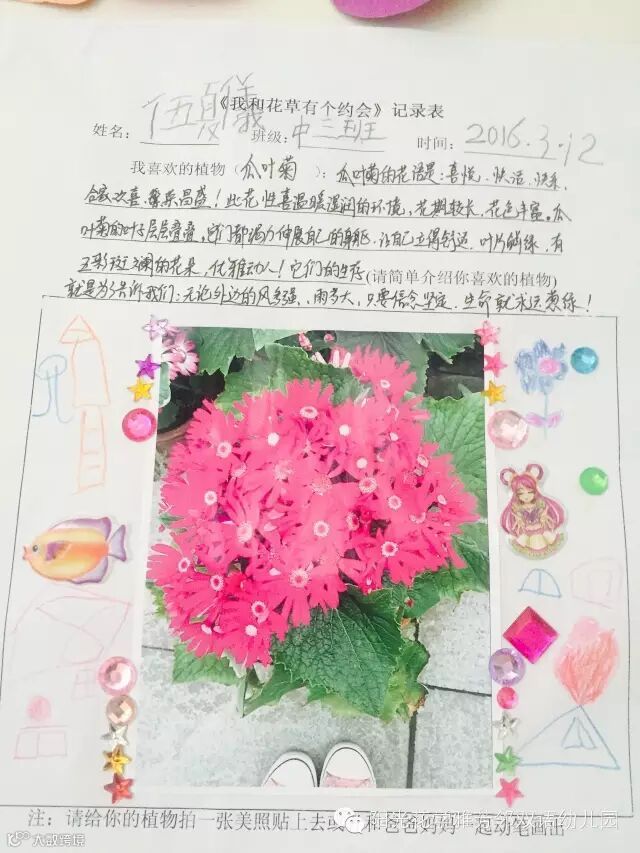 《我和花草有个约会》记录表
姓名： 伍 儀 班级：中三班 时间：2016.3.12
我喜欢的植物（瓜叶菊）：瓜叶菊的花语是：喜悦、快活、快乐、
合家欢喜、繁荣昌盛！此花性喜温暖湿润的环境，花期较长，花色丰富。瓜
叶菊的叶子层层叠叠，它们都竭力伸展自己的身躯，让自己立得舒适，叶片鲜绿，有
五彩斑斓的花朵，优雅动人！它们的生存(请简单介绍你喜欢的植物)
就是为了告诉我们：无论外边的风多强、雨多大，只要信念坚定，生命就永远葱绿！
注：请给你的植物拍一张美照贴上去或 和爸爸妈妈一起动笔画出
大数跨境 双语幼儿园